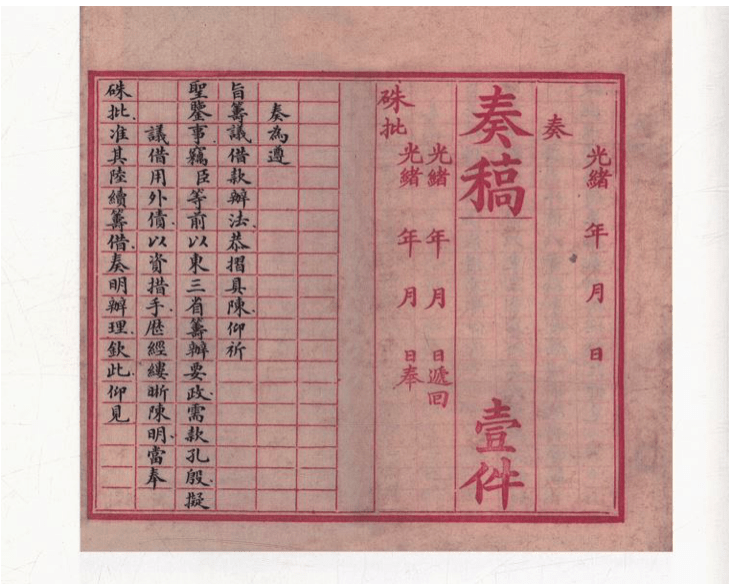 光緒 年 月 日
奏
奏稿 壹件
光緒 年 月 日遞回
光緒 年 月 日奉
硃批
奏為遵
旨籌議借款辦法恭摺具陳仰祈
聖鑒事竊臣等前以東三省籌辦要政需款孔殷擬
議借用外債以資措手歷經縷晰陳明當奉
硃批准其陸續籌借奏明辦理欽此仰見